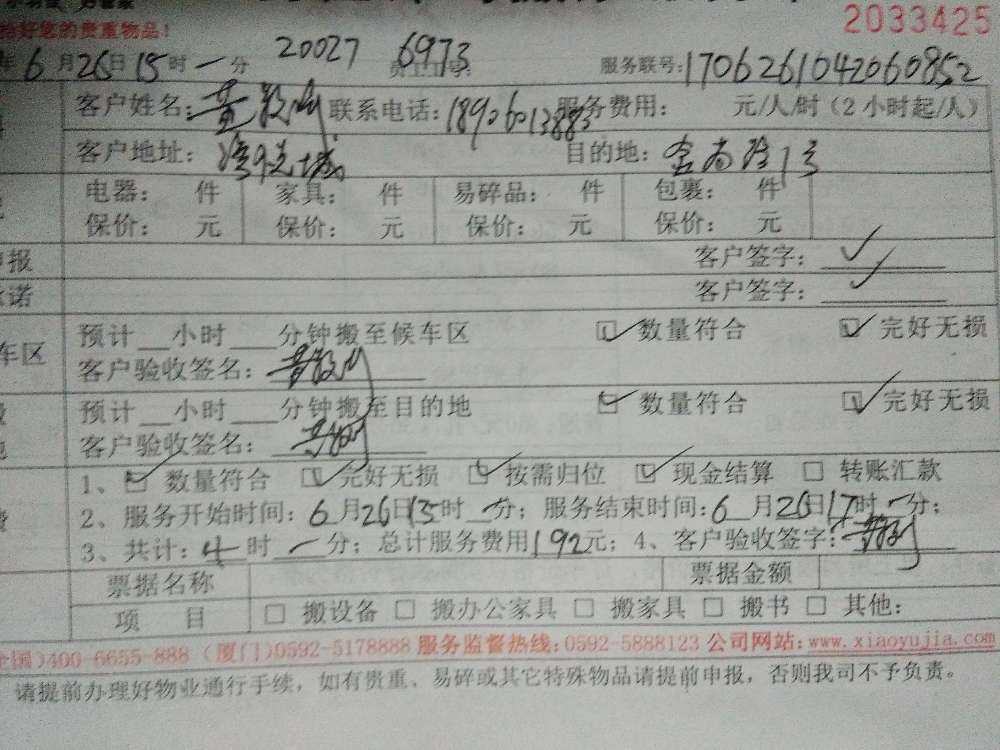 2033425
持好您的贵重物品!
年6月26日15时一分 20027 6973 员工工号: 服务联号:1706261042060852
客户姓名: 联系电话:18906013883 服务费用: 元/人/时(2小时起/人)
客户地址: 目的地:
电器: 件 家具: 件 易碎品: 件 包裹: 件
保价: 元 保价: 元 保价: 元 保价: 元
申报 客户签字:✓
承诺 客户签字:✓
预计__小时___分钟搬至候车区 ☑数量符合 ☑完好无损
车区
客户验收签名:
预计__小时___分钟搬至目的地 ☑数量符合 ☑完好无损
客户验收签名:
1、☑数量符合 ☑完好无损 ☑按需归位 ☑现金结算 □转账汇款
2、服务开始时间:6月26日15时一分;服务结束时间:6月26日17时一分;
费 3、共计:4时一分;总计服务费用192元;4、客户验收签字:
票据名称 票据金额
项 目 □搬设备 □搬办公家具 □搬家具 □搬书 □其他:
全国)400-6655-888 (厦门)0592-5178888 服务监督热线:0592-5888123 公司网站:www.xiaoyujia.com
请提前办理好物业通行手续,如有贵重、易碎或其它特殊物品请提前申报,否则我司不予负责。